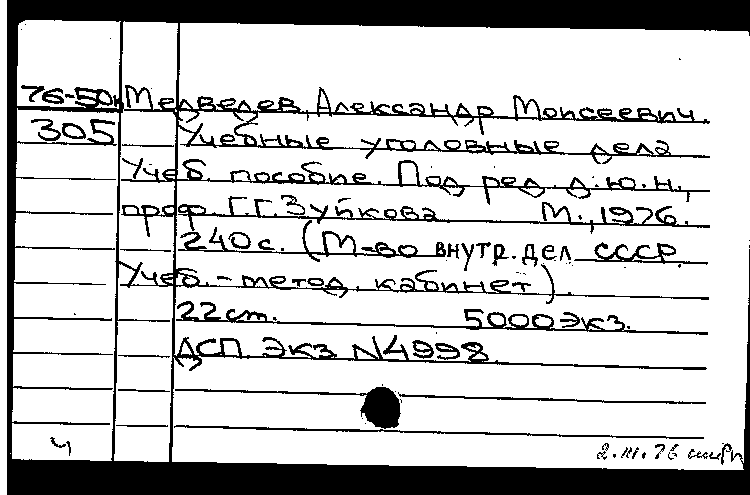 76-50н Медведев, Александр Моисеевич.
305 Учебные уголовные дела
Учеб. пособие. Под ред. д.ю.н.,
проф. Г.Г. Зуйкова М., 1976.
240 с. (М-во внутр. дел СССР.
Учеб.-метод. кабинет).
22 см. 5000 экз.
ДСП. Экз N4998.
ч 2.III.76